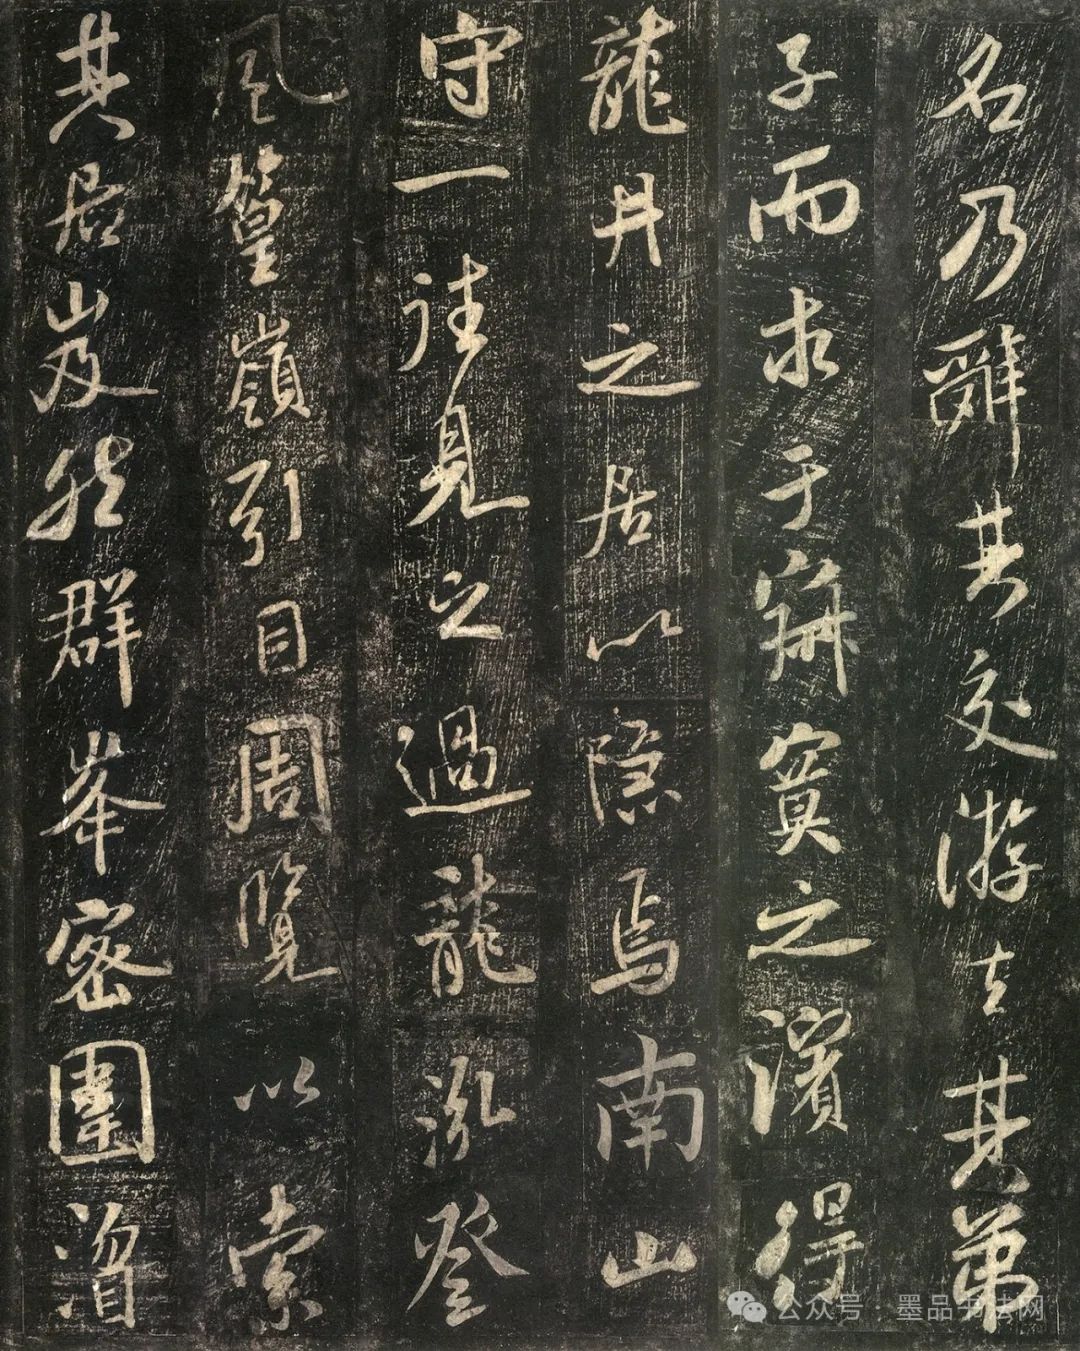 名乃辭其交游去其弟
子而求于寂寞之濱得
龍井之居以隱焉南山
守一往見之過龍泓登
風篁嶺引目周覽以索
其居岌然群峯密圍
公众号 · 墨品书法网